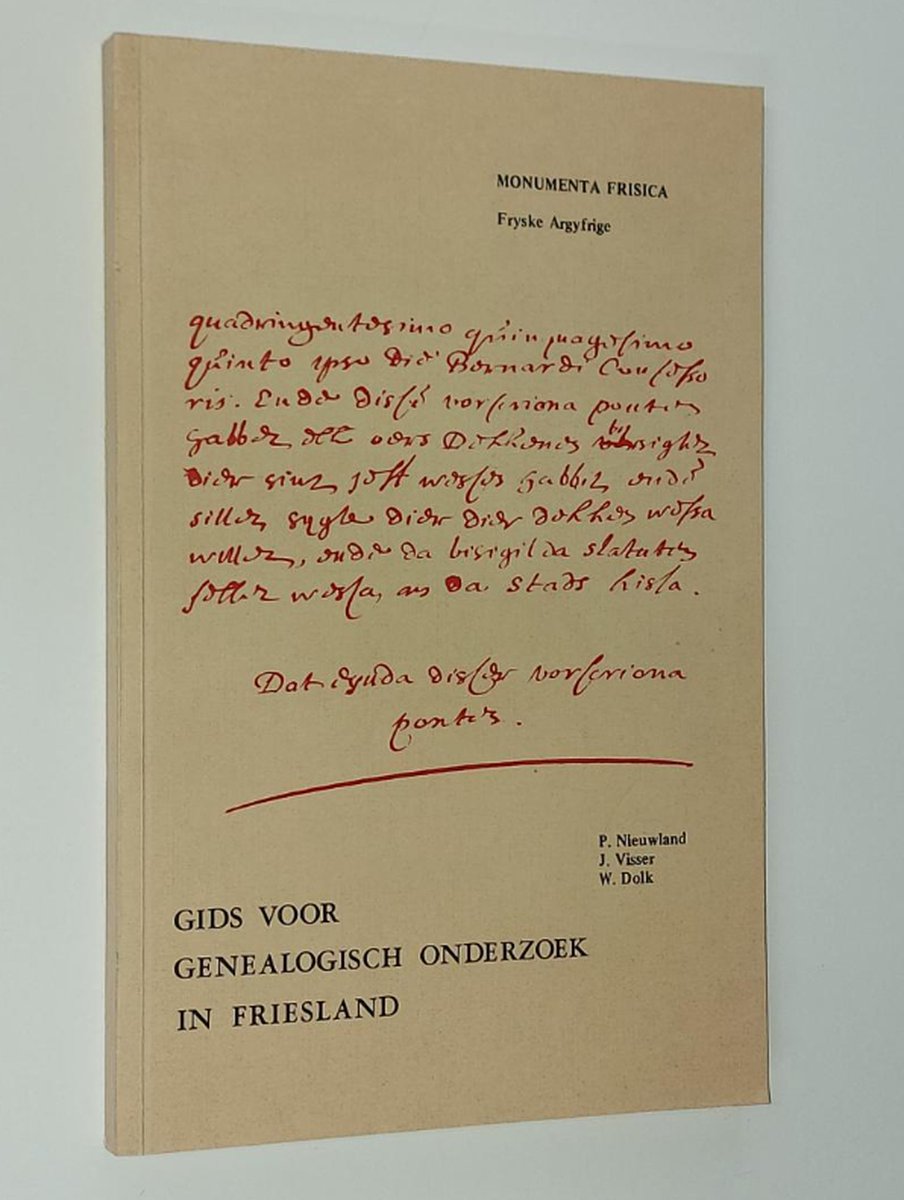 MONUMENTA FRISICA
Fryske Argyfrige
quadringentesimo quinquagesimo
quinto ipso die Bernardi Confesso
ris. Ende disse vorscriona ponten
habbet
dier sint jeff wesses habbet ende
sillen sygle dier dier dekken wessa
willen, ende da bisigilda statuten
sellen wessa, an da Stads kista.
Dat eynda disser vorscriona
ponten.
P. Nieuwland
J. Visser
W. Dolk
GIDS VOOR
GENEALOGISCH ONDERZOEK
IN FRIESLAND